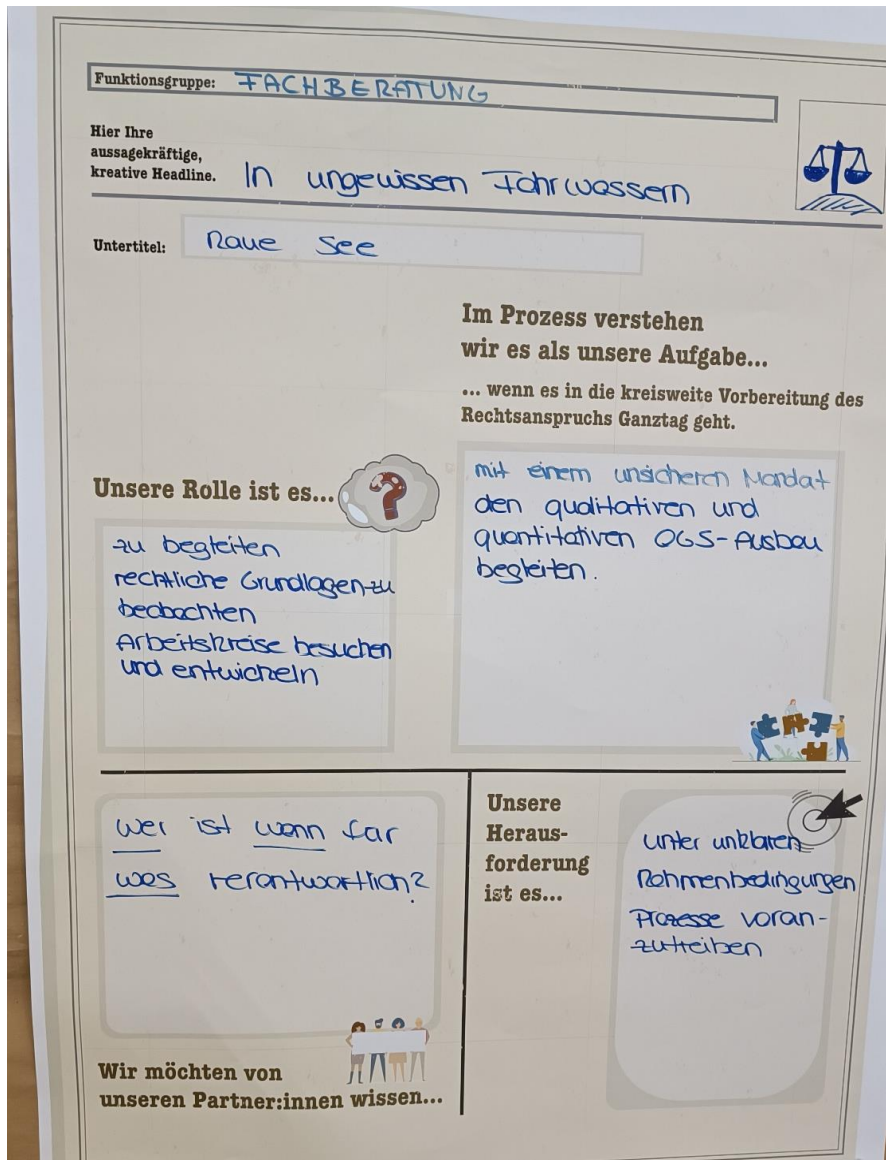 Funktionsgruppe: FACHBERATUNG
Hier Ihre
aussagekräftige,
kreative Headline. In ungewissen Fahrwassern
Untertitel: Raue See
Im Prozess verstehen
wir es als unsere Aufgabe...
... wenn es in die kreisweite Vorbereitung des
Rechtsanspruchs Ganztag geht.
mit einem unsicheren Mandat
den qualitativen und
quantitativen OGS-Ausbau
begleiten.
Unsere Rolle ist es...
zu begleiten
rechtliche Grundlagen zu
beobachten
Arbeitskreise besuchen
und entwickeln
wer ist wann für
was verantwortlich?
Wir möchten von
unseren Partner:innen wissen...
Unsere
Heraus-
forderung
ist es...
unter unklaren
Rahmenbedingungen
Prozesse voran-
zutreiben